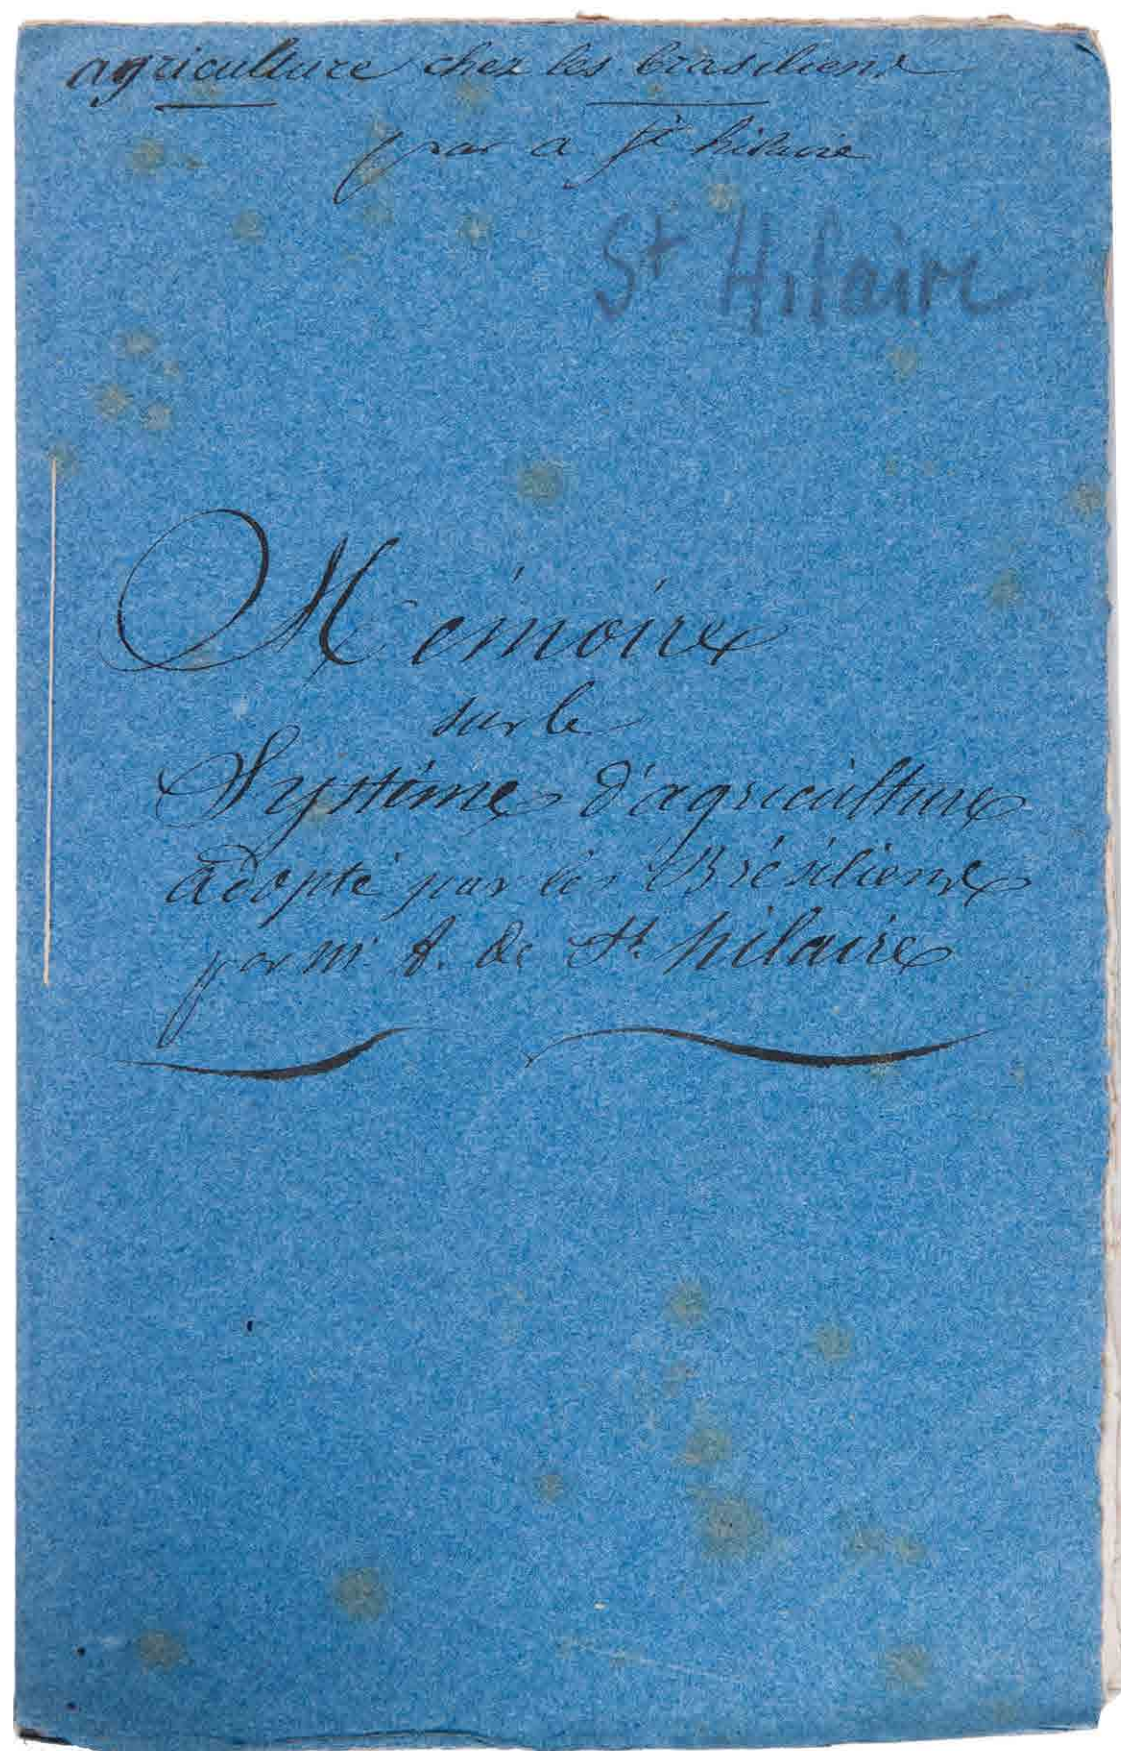 agriculture chez les brasiliens
par a St hilaire
St Hilaire
Mémoire
sur le
Système d'agriculture
adopté par les Brésiliens
par M. A. de St. hilaire